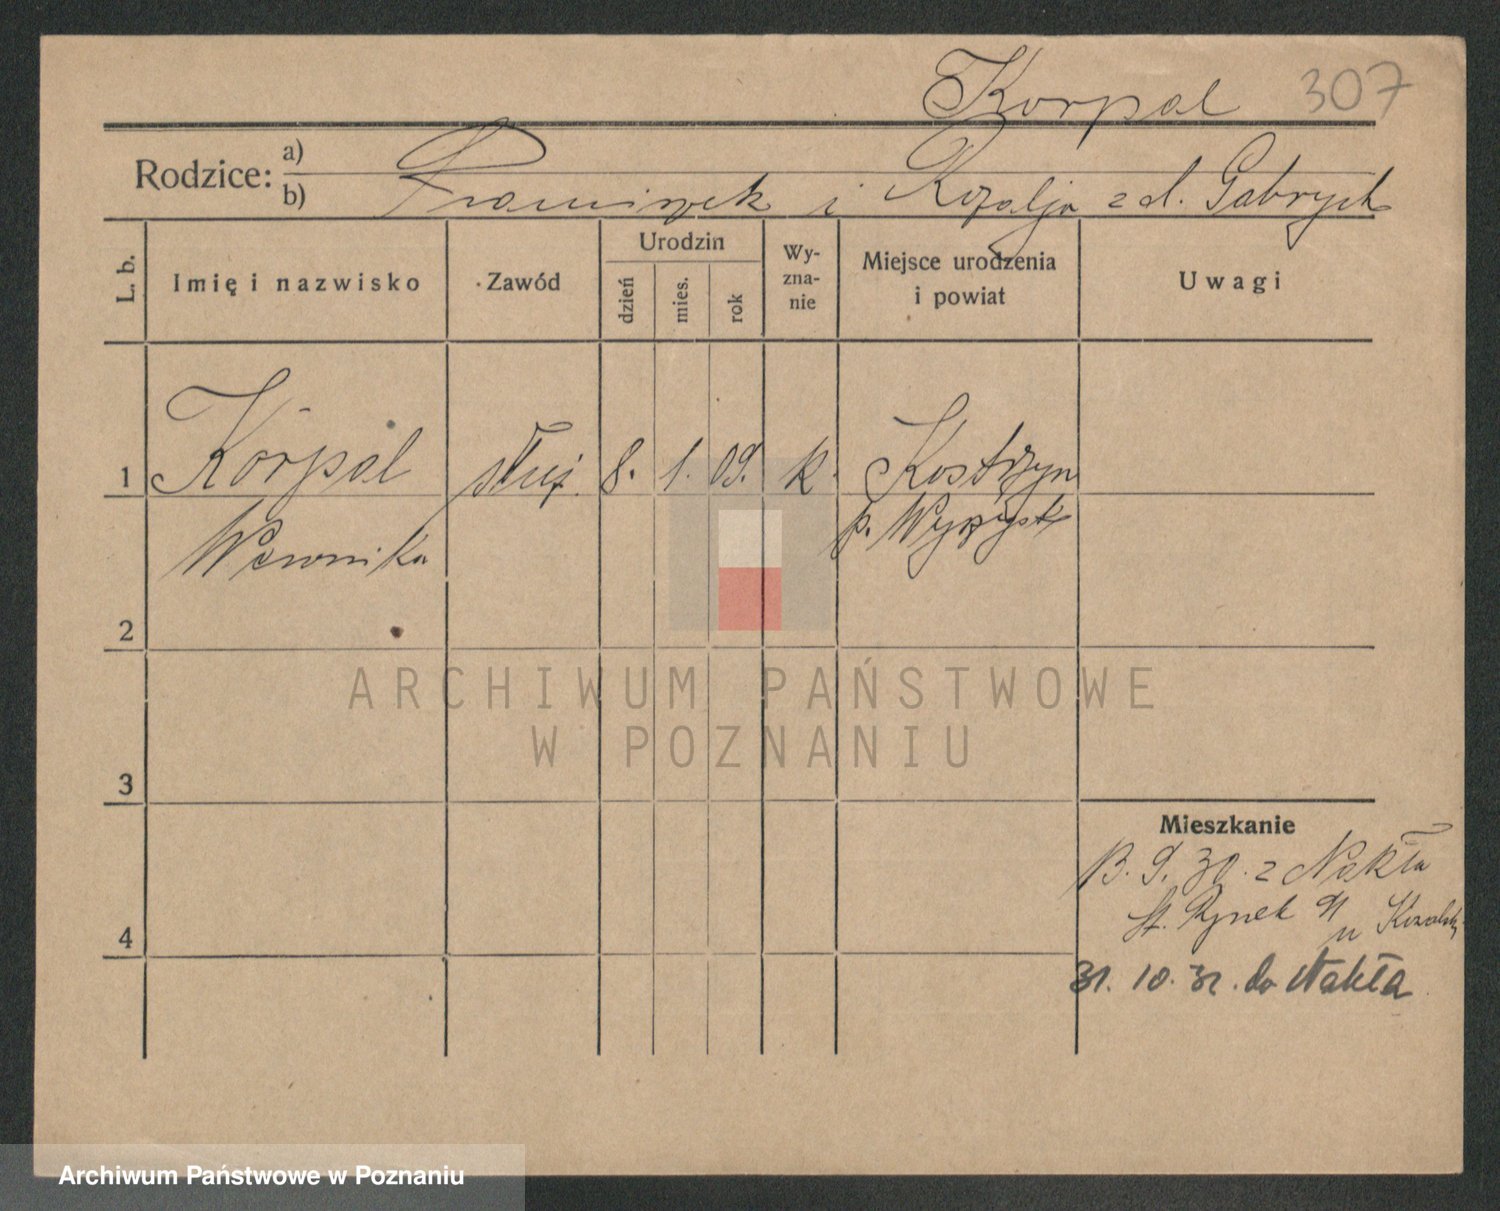 Korpal 307
Rodzice: a)
b) Franciszek i Rozalja z d. Gabrych
L. b.
Imię i nazwisko
Zawód
Urodzin
dzień
mies.
rok
Wy-
zna-
nie
Miejsce urodzenia
i powiat
Uwagi
1 Korpal służ. 8. 1. 09. k. Kostrzyn
Weronika p. Wyrzysk
2
3
4
Mieszkanie
13. 9. 30. z Nakła
St. Rynek 9 u
31. 10. 31. do Nakła
ARCHIWUM PAŃSTWOWE
W POZNANIU
Archiwum Państwowe w Poznaniu